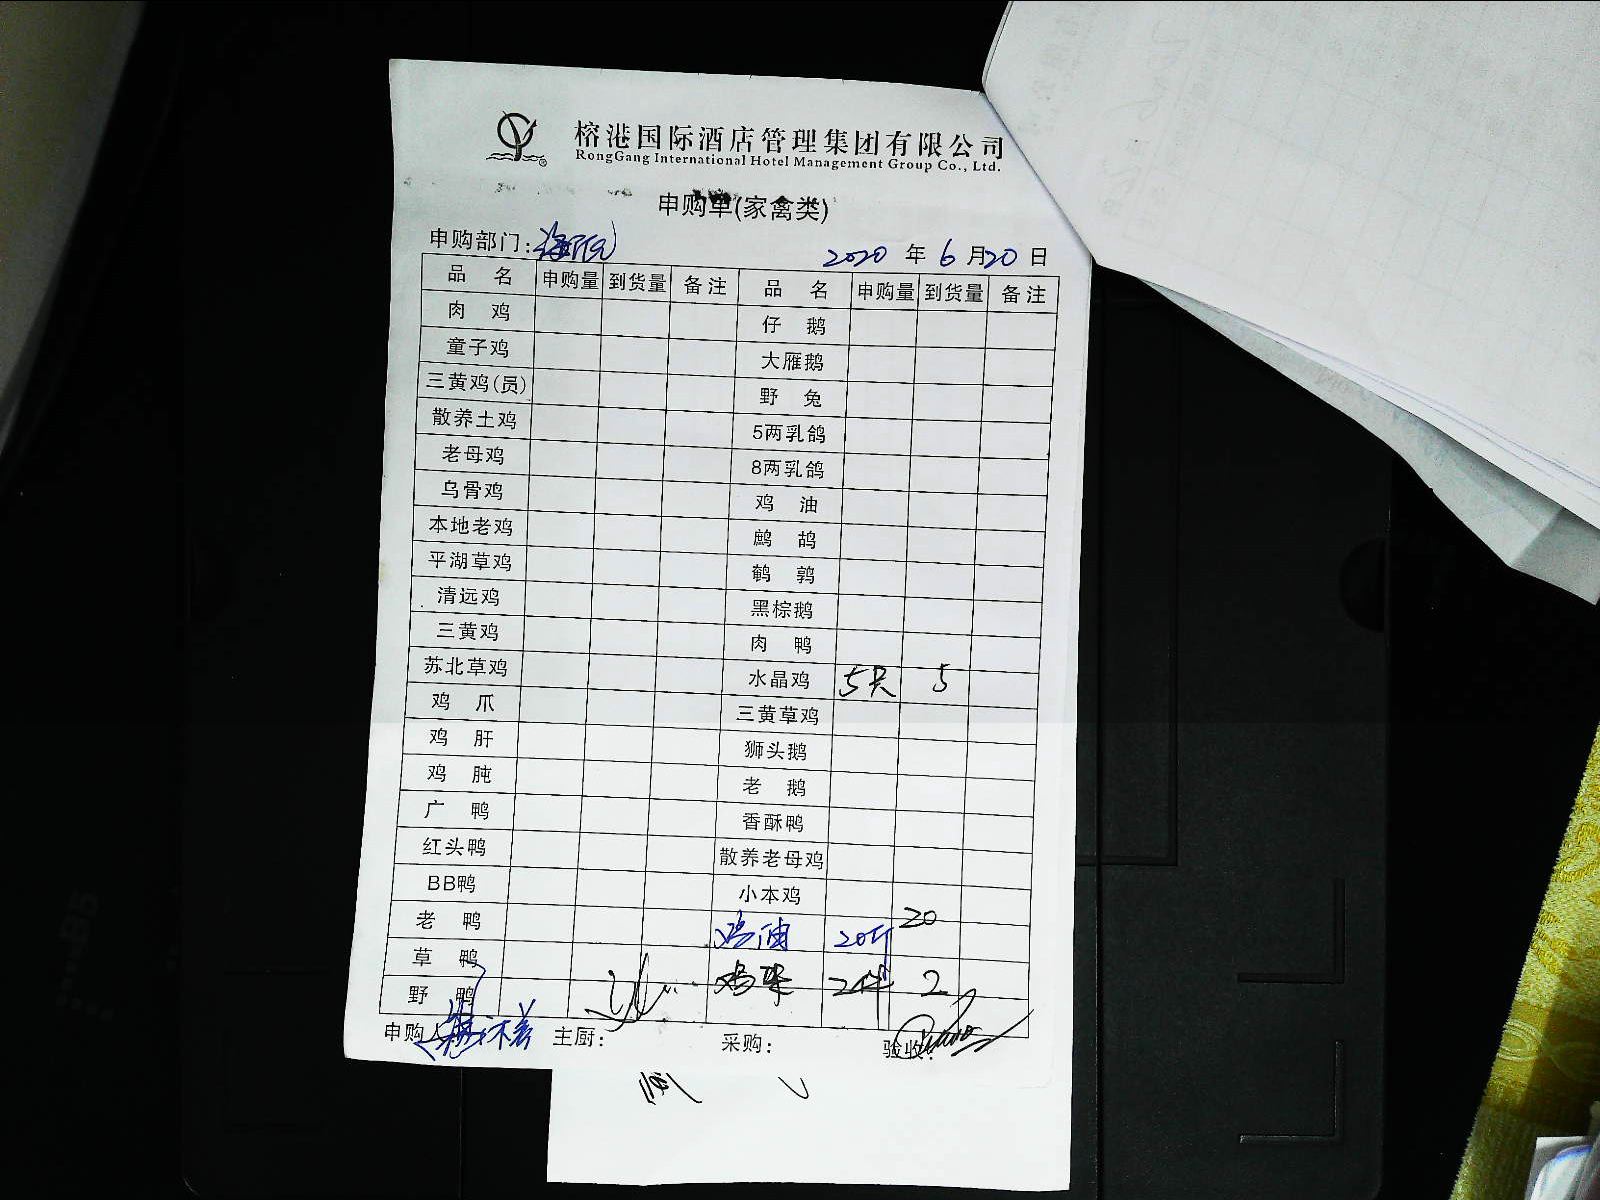 榕港国际酒店管理集团有限公司
RongGang International Hotel Management Group Co., Ltd.
申购单(家禽类)
申购部门: 2020 年 6 月 20 日
品 名 申购量 到货量 备注 品 名 申购量 到货量 备注
肉 鸡 仔 鹅
童子鸡 大雁鹅
三黄鸡(员) 野 兔
散养土鸡 5两乳鸽
老母鸡 8两乳鸽
乌骨鸡 鸡 油
本地老鸡 鹧 鸪
平湖草鸡 鹌 鹑
清远鸡 黑棕鹅
三黄鸡 肉 鸭
苏北草鸡 水晶鸡 5只 5
鸡 爪 三黄草鸡
鸡 肝 狮头鹅
鸡 肫 老 鹅
广 鸭 香酥鸭
红头鸭 散养老母鸡
BB鸭 小本鸡
老 鸭 鸡油 20斤 20
草 鸭 鸡 2件 2
野 鸭
申购人 主厨: 采购: 验收: